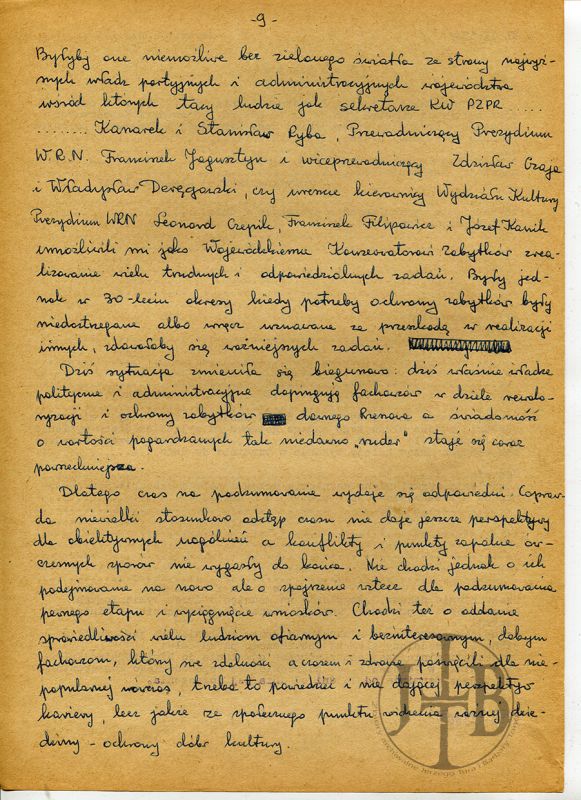 -9-
Byłyby one niemożliwe bez zielonego światła ze strony najwyż-
szych władz partyjnych i administracyjnych województwa
wśród których tacy ludzie jak sekretarze KW PZPR .....
......... Kanarek i Stanisław Ryba, Przewodniczący Prezydium
W.R.N. Franciszek Jagusztyn i wiceprzewodniczący Zdzisław Czaja
i Władysław Deręgowski, czy wreszcie kierownicy Wydziału Kultury
Prezydium WRN Leonard Czepik, Franciszek Filipowicz i Józef Kanik
umożliwili mi jako Wojewódzkiemu Konserwatorowi Zabytków zrea-
lizowanie wielu trudnych i odpowiedzialnych zadań. Były jed-
nak w 30-leciu okresy kiedy potrzeby ochrony zabytków były
niedostrzegane albo wręcz uznawane za przeszkodę w realizacji
innych, zdawałoby się ważniejszych zadań.
Dziś sytuacja zmieniła się biegunowo: dziś właśnie władze
polityczne i administracyjne dopingują fachowców w dziele rewalo-
ryzacji i ochrony zabytków dawnego a świadomość
o wartości pogardzanych tak niedawno „ruder" staje się coraz
powszechniejsza.
Dlatego czas na podsumowanie wydaje się odpowiedni. Copraw-
da niewielki stosunkowo odstęp czasu nie daje jeszcze perspektywy
dla obiektywnych uogólnień a konflikty i punkty zapalne ów-
czesnych sporów nie wygasły do końca. Nie chodzi jednak o ich
podejmowanie na nowo ale o spojrzenie wstecz dla podsumowania
pewnego etapu i wyciągnięcie wniosków. Chodzi też o oddanie
sprawiedliwości wielu ludziom ofiarnym i bezinteresownym, dobrym
fachowcom, którzy swe zdolności a czasem i zdrowie poświęcili dla nie-
popularnej wówczas, trzeba to powiedzieć i nie dającej perspektyw
kariery, lecz jakże ze społecznego punktu widzenia ważnej dzie-
dziny - ochrony dóbr kultury.
JTB